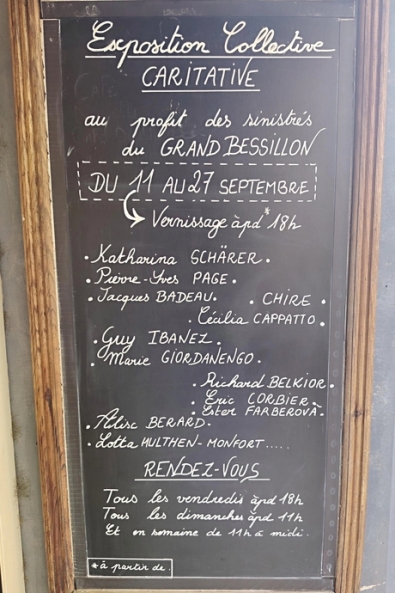 Exposition Collective
CARITATIVE
au profit des sinistrés
du GRAND BESSILLON
DU 11 AU 27 SEPTEMBRE
Vernissage àpd* 18h
• Katharina SCHÄRER •
• Pierre-Yves PAGE •
• Jacques BADEAU • • CHIRE •
• Cécilia CAPPATTO •
• Guy IBANEZ •
• Marie GIORDANENGO •
• Richard BELKIOR •
• Eric CORBIER •
• Ester FARBEROVÀ •
• BERARD •
• Lotta HULTHEN-MONFORT.....
RENDEZ-VOUS
Tous les vendredis àpd 18h
Tous les dimanches àpd 11h
Et en semaine de 11h à midi.
*à partir de.